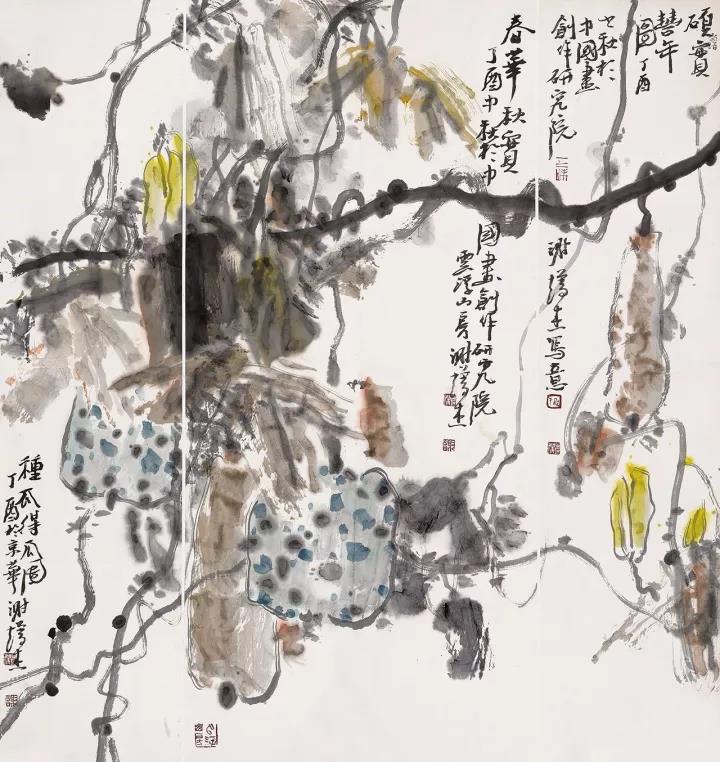 碩實
年
圖丁酉
之秋於
中國畫
創作研究院
謝增杰寫意
春華秋實
丁酉中秋於中
國畫創作研究院
雲浮山房謝增杰
種瓜得瓜圖
丁酉於京華謝增杰